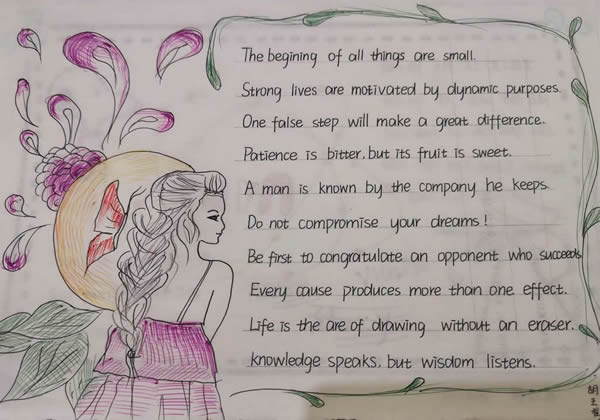 The begining of all things are small.
Strong lives are motivated by dynamic purposes.
One false step will make a great difference.
Patience is bitter, but its fruit is sweet.
A man is known by the company he keeps.
Do not compromise your dreams!
Be first to congratulate an opponent who succeeds
Every cause produces more than one effect.
Life is the are of drawing without an eraser.
knowledge speaks, but wisdom listens.
胡玉